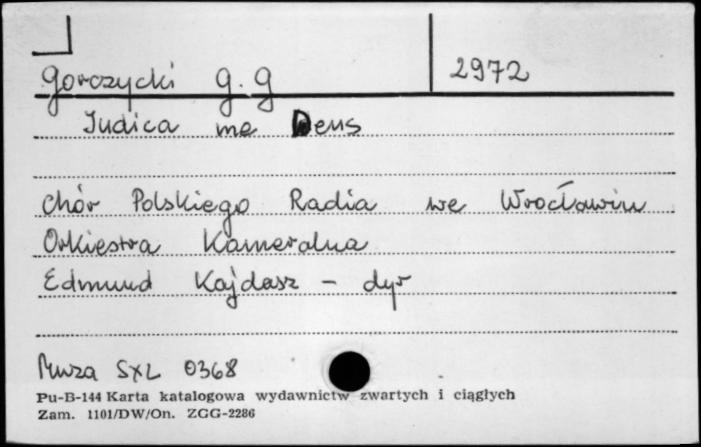 Gorczycki G. G 2972
Iudica me Deus
Chór Polskiego Radia we Wrocławiu
Orkiestra Kameralna
Edmund Kajdasz - dyr
Muza SXL 0368
Pu-B-144 Karta katalogowa wydawnictw zwartych i ciągłych
Zam. 1101/DW/On. ZGG-2286